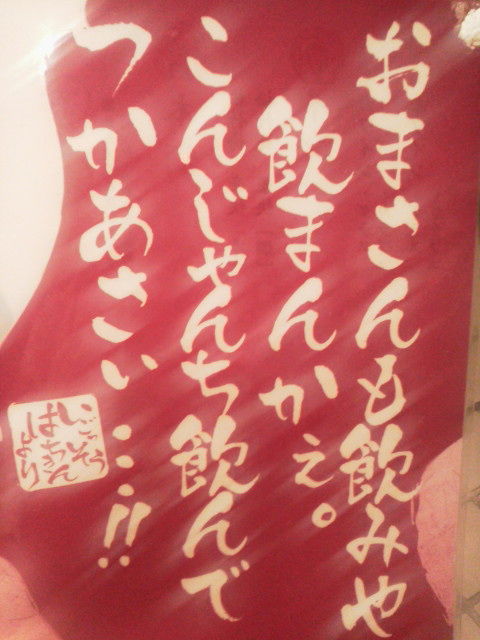 おまさんも飲みや
飲まんかえ。
こんじゃんち飲んで
つかあさい…!!
いごっそう
はちきん
より